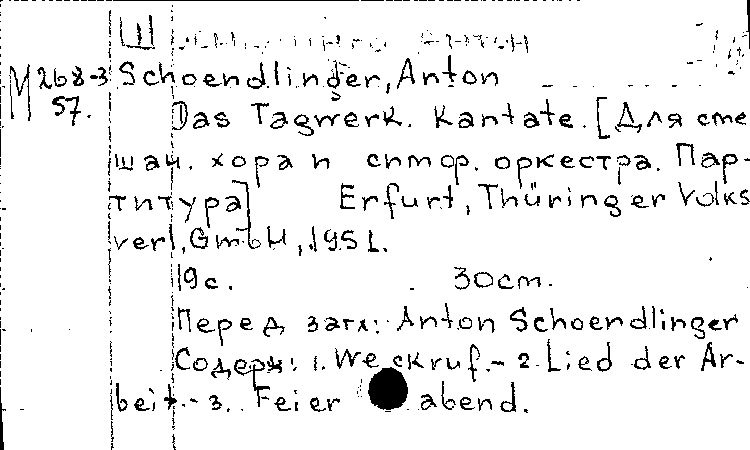 Ш Антон
M 268-3 Schoendlinger, Anton
57. Das Tagwerk. Kantate. [Для сме
шан. хора и симф. оркестра. Пар-
титура] Erfurt, Thüringer Volks
verl, GmbH, 1951.
19с. 30cm.
Перед загл: Anton Schoendlinger
Содерж: 1. Weckruf.- 2. Lied der Ar-
beit.- 3. Feierabend.